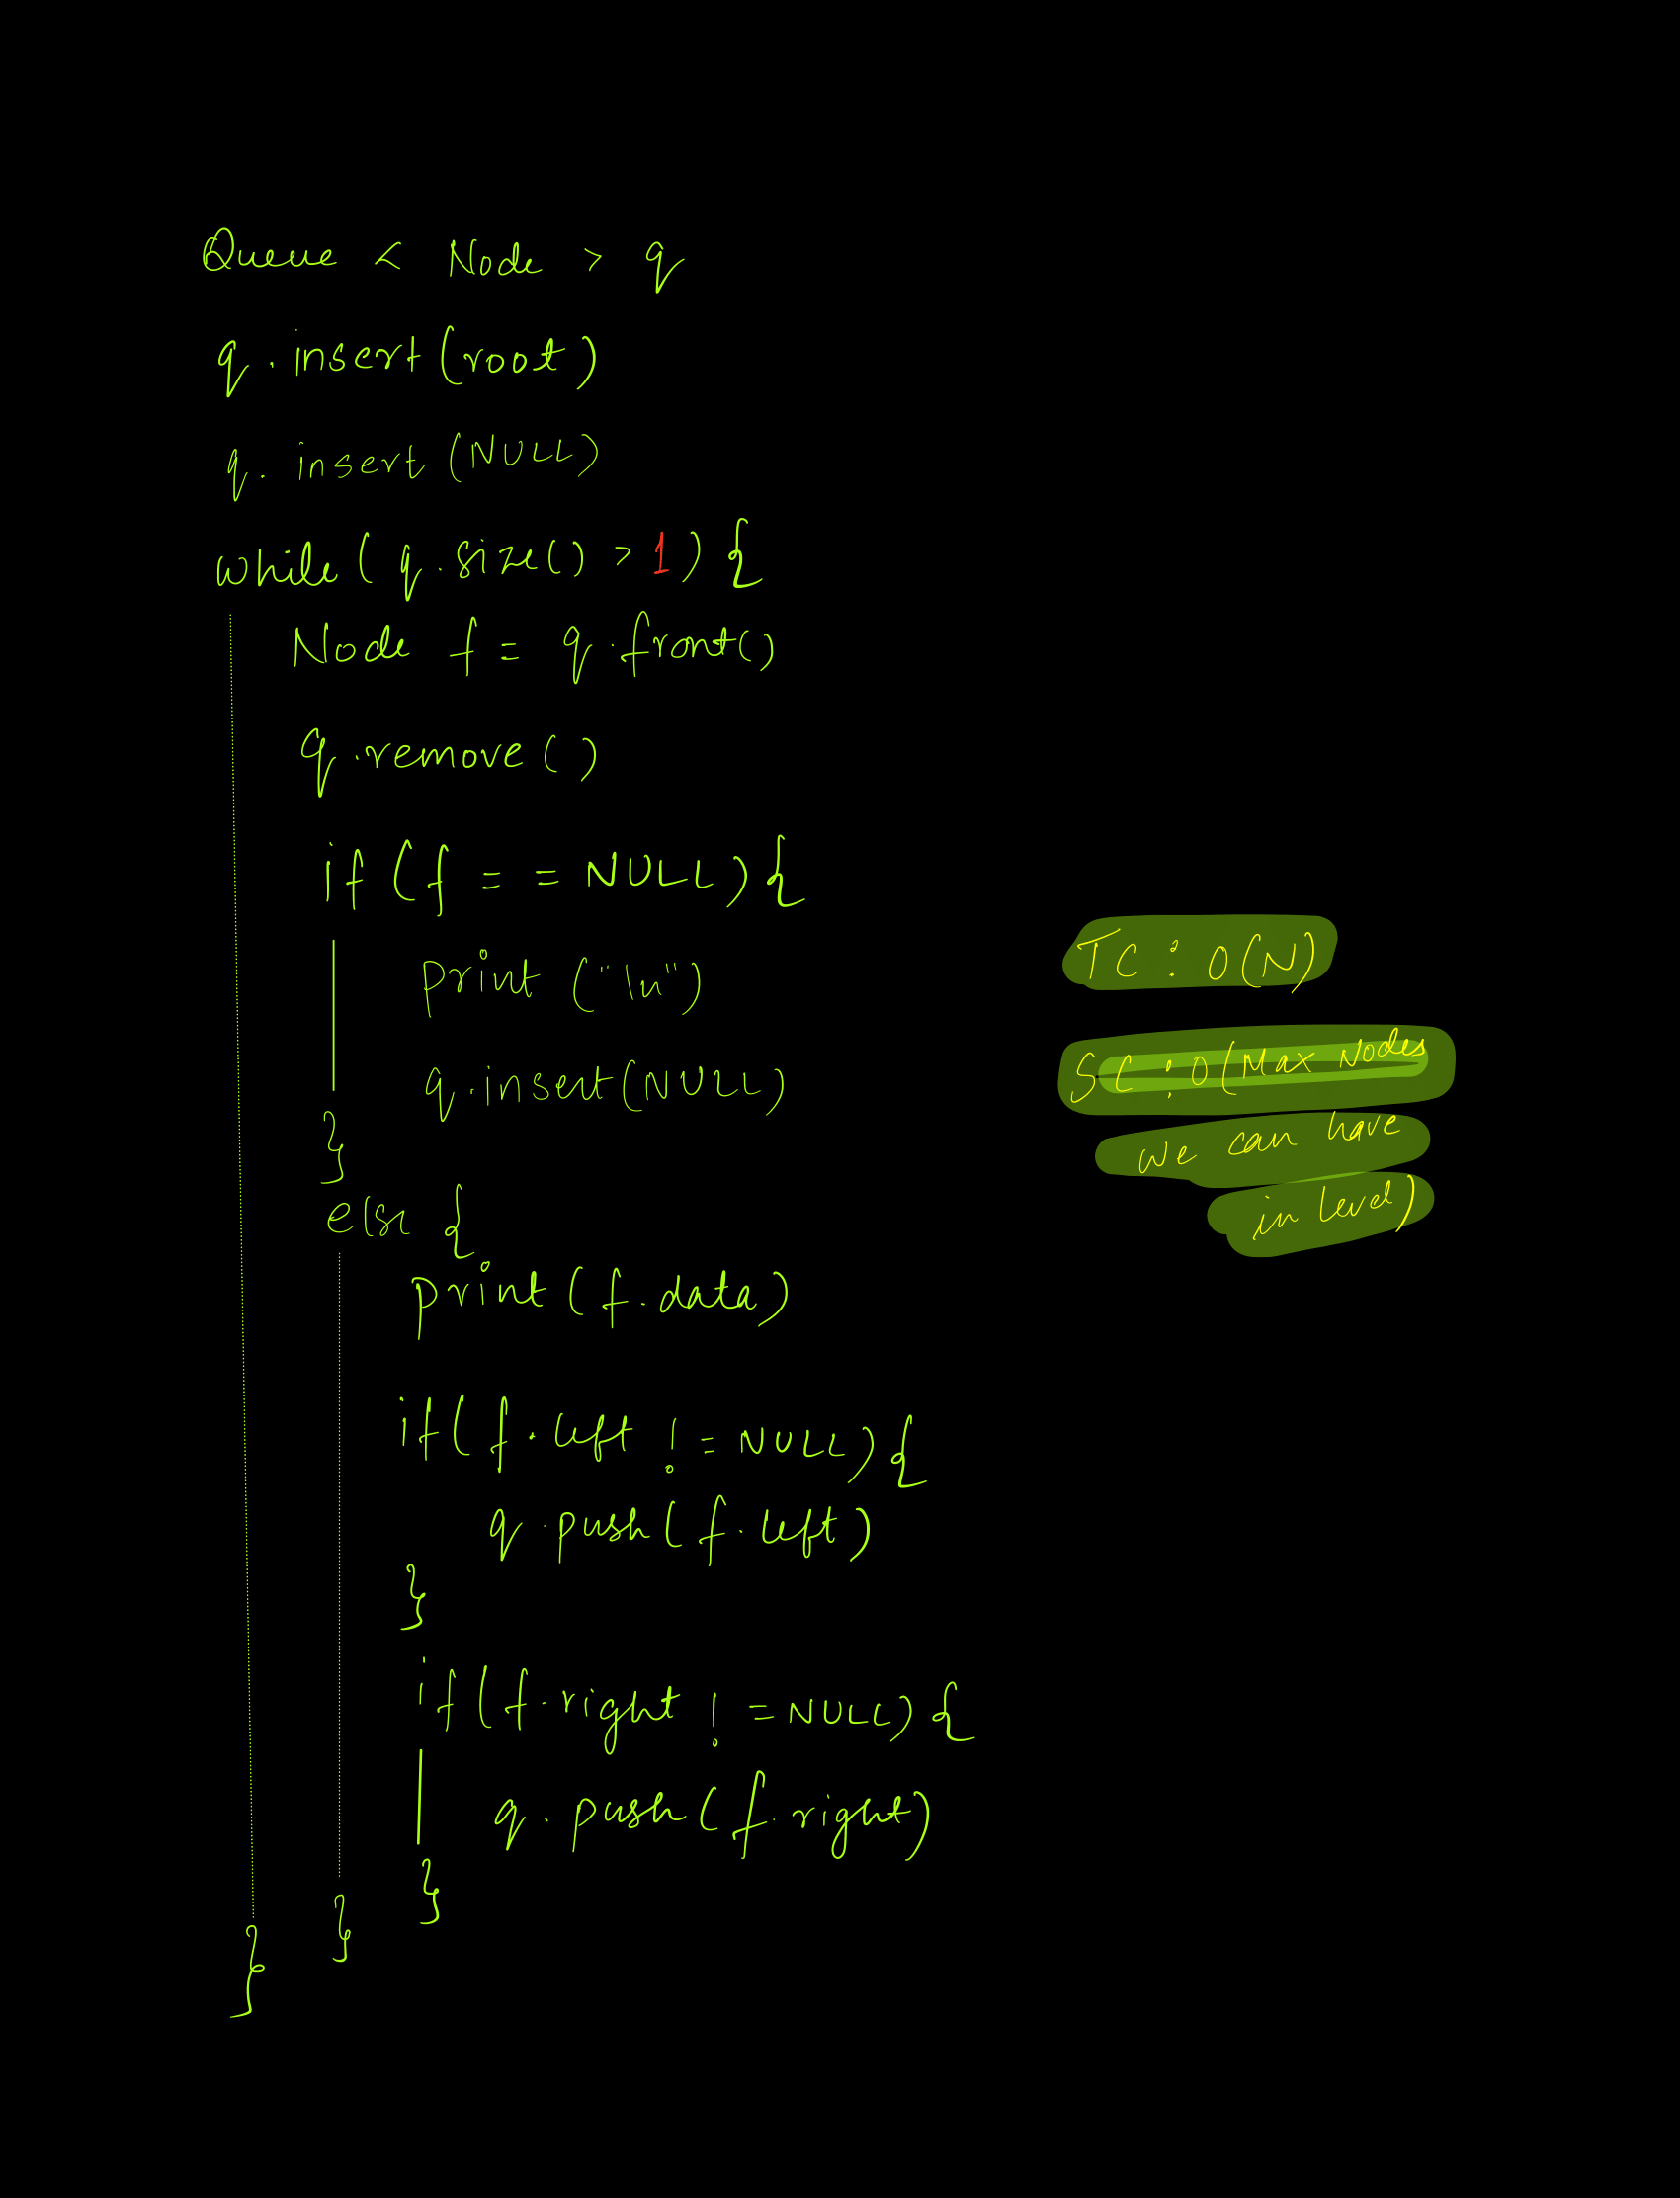 Queue < Node > q
q.insert(root)
q.insert(NULL)
while(q.size() > 1) {
Node f = q.front()
q.remove()
if (f == NULL) {
print ("\n")
q.insert(NULL)
}
else {
print(f.data)
if(f.left != NULL) {
q.push(f.left)
}
if(f.right != NULL) {
q.push(f.right)
}
}
}
TC : O(N)
SC : O(Max Nodes
we can have
in level)